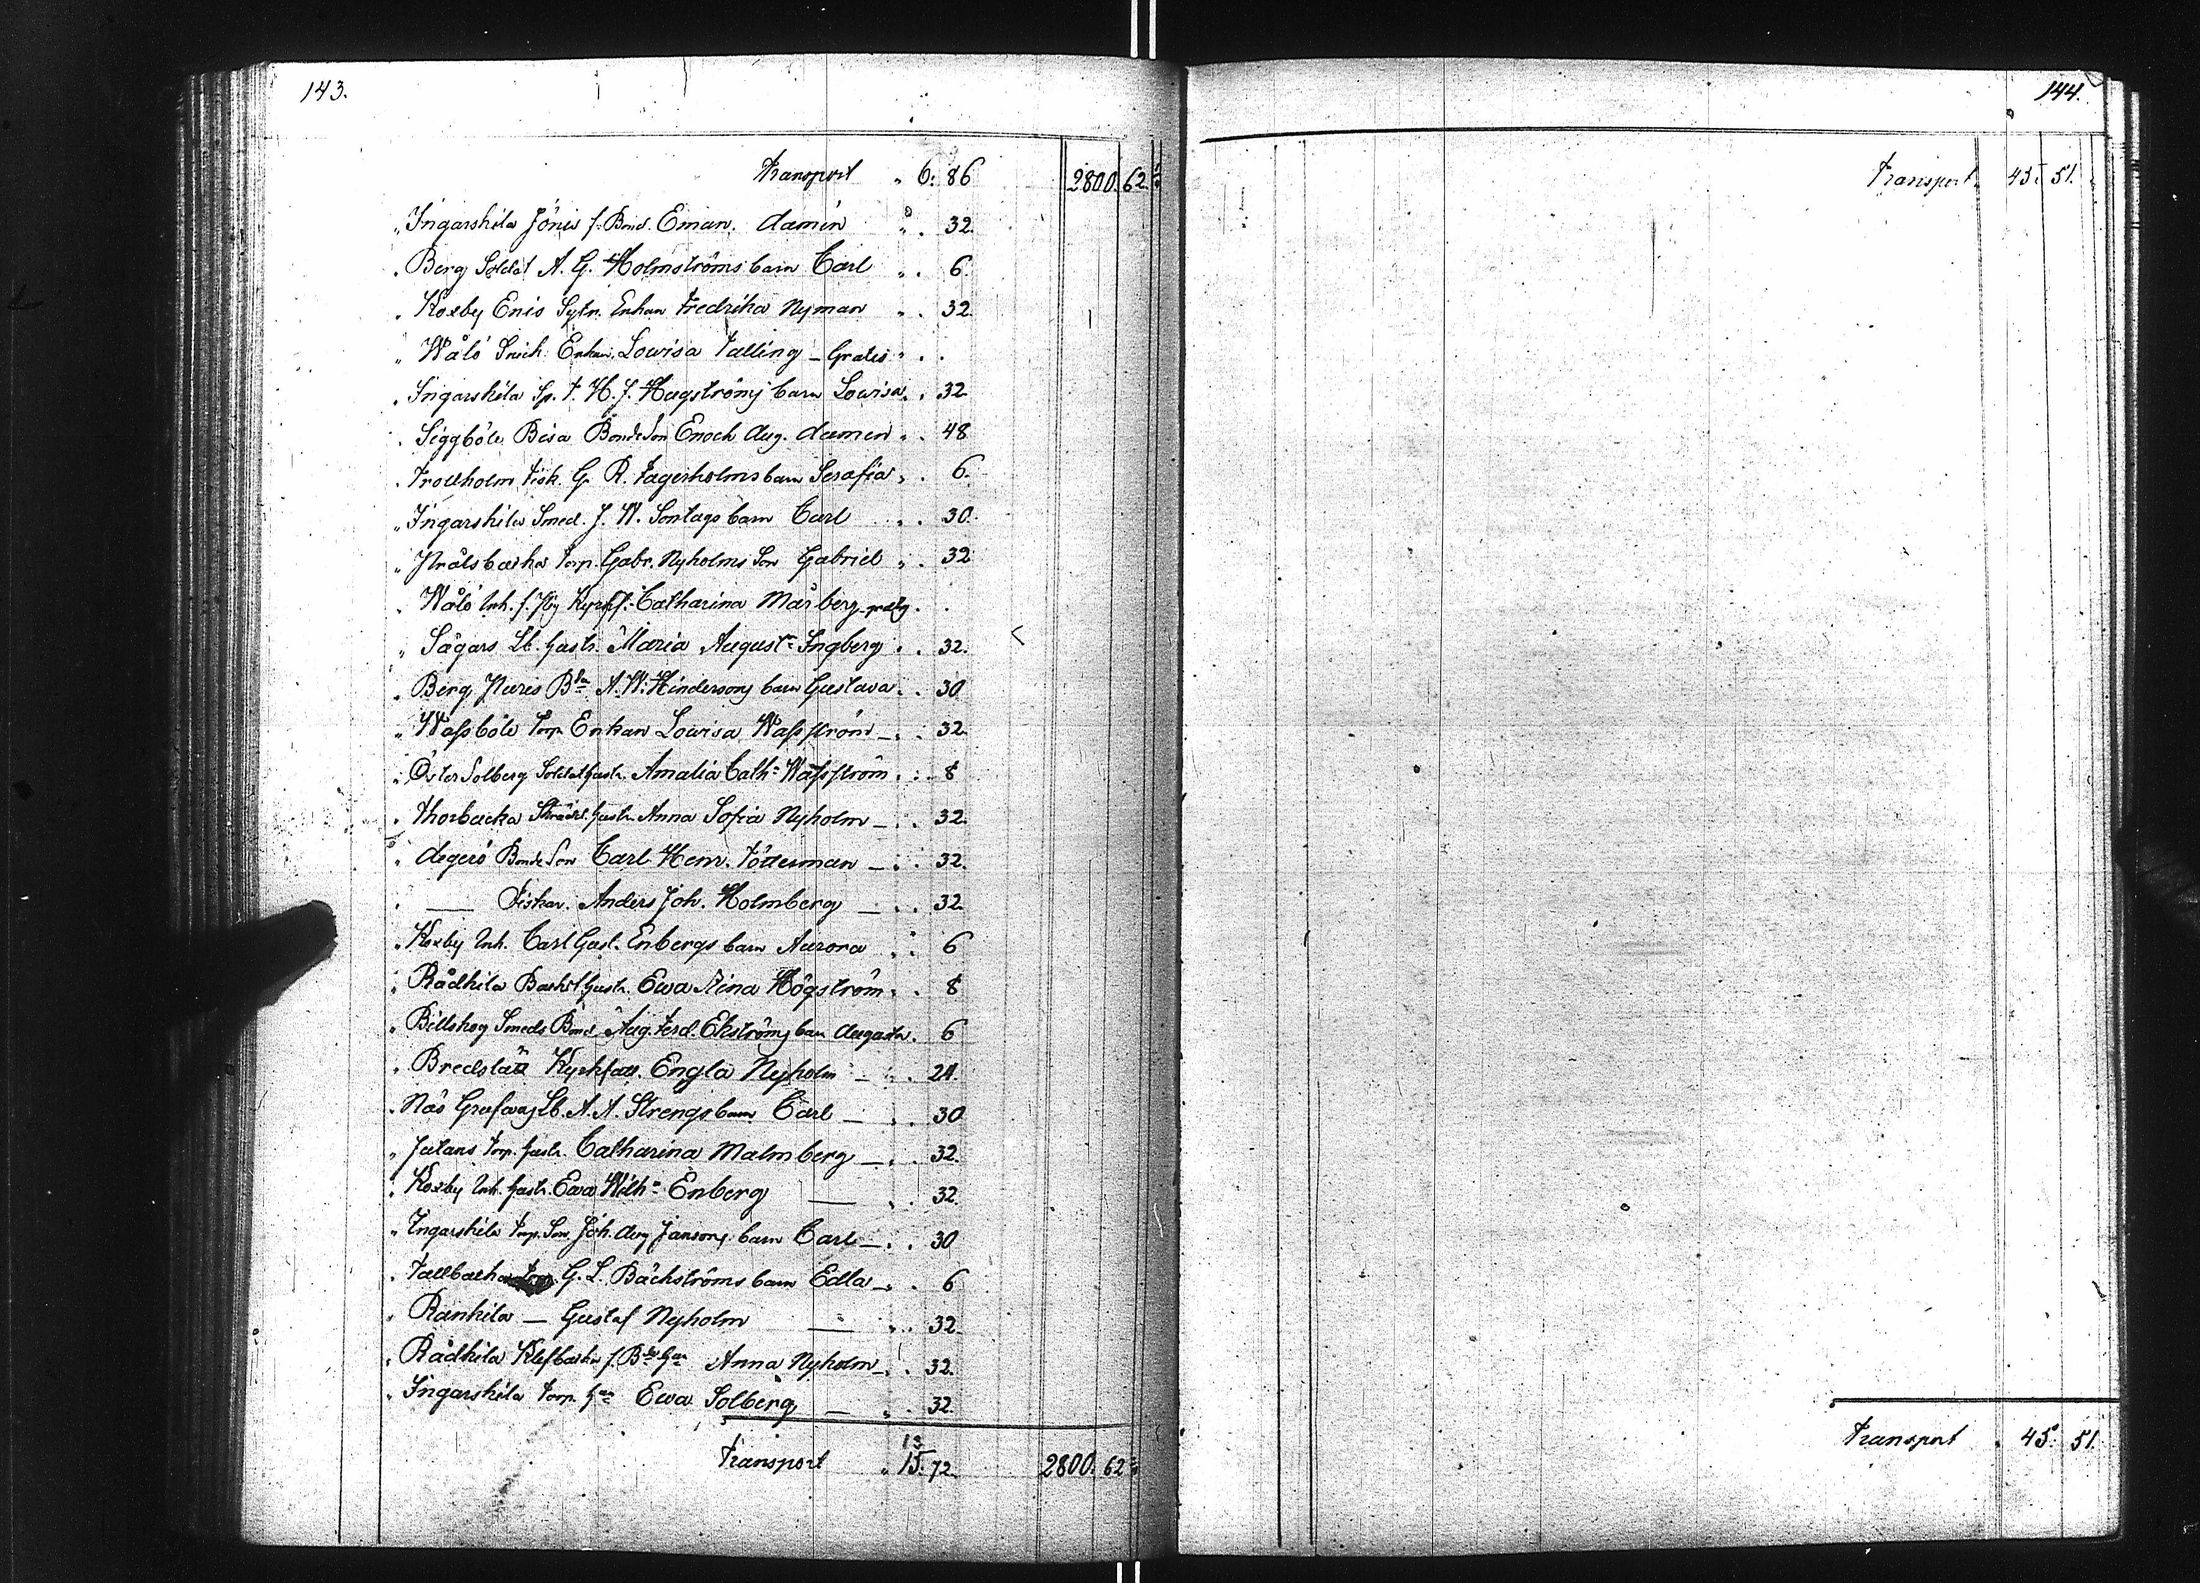 143.
Transport " 6: 86 2800. 62
" Ingarskila Jönis f. Bond. Eman. Amin " . 32.
" Berg Soldat A. G. Holmströms barn Carl " . 6.
" Koxby Enis Sytn. Enkan Fredrika Nyman " . 32.
" Wålö Enkan Lowisa Tælling – Gratis " . .
" Ingarskila Sp. T. H. J. Hagströms barn Lowisa " . 32
" Siggböle Bisa BondeSon Enoch Aug. " . 48
" Trollholm Fisk. G. R. Fagerholms barn Serafia " . 6.
" Ingarskila Smed. J. W. Sontags barn Carl " . 30.
" Torp. Gabr. Nyholms Son Gabriel " . 32
" Wålö Inh. f. Catharina Mårberg . .
" Sågars Lb. hustr. Maria August. Ingberg " . 32.
" Berg A. W. Hindersons barn Gustava " . 30
" Wassböle Torp. Enkan Lowisa Wasström – " . 32.
" Öster Solberg Soldat hustr. Amalia Cath. Wasström " . 8
" Thorbacka hustr. Anna Sofia Nyholm – " . 32.
" Degerö BondeSon Carl Henr. Tötterman – " . 32.
" — Fiskar. Anders Joh. Holmberg — " . 32.
" Koxby Inh. Carl Gust. Enbergs barn Aurora " . 6
" Rådkila hustr. Ewa Stina Högström " . 8
" Billskog Smeds Bond Aug. Ferd. Ekströms barn Augusta . 6
" Bredslätt Kyrkfatt. Engla Nyholm – " . 24.
" Näs Lb. A. A. Strengs barn Carl – " . 30
" Jutans Torp. hustr. Catharina Malmberg – " . 32.
" Koxby Inh. hustr. Ewa Wilh. Enberg — " . 32.
" Ingarskila Torp. Son Joh. Aug Jansons barn Carl – " . 30
" Tallbacka Torp. G. L. Bäckströms barn Edla – " . 6
" Rankila — Gustaf Nyholm — " . 32.
" Rådkila Klefbacka Anna Nyholm – " . 32.
" Ingarskila Torp. Ewa Solberg — " . 32.
13
Transport " 15. 72. 2800. 62
144.
Transport " 45: 51.
Transport " 45: 51.